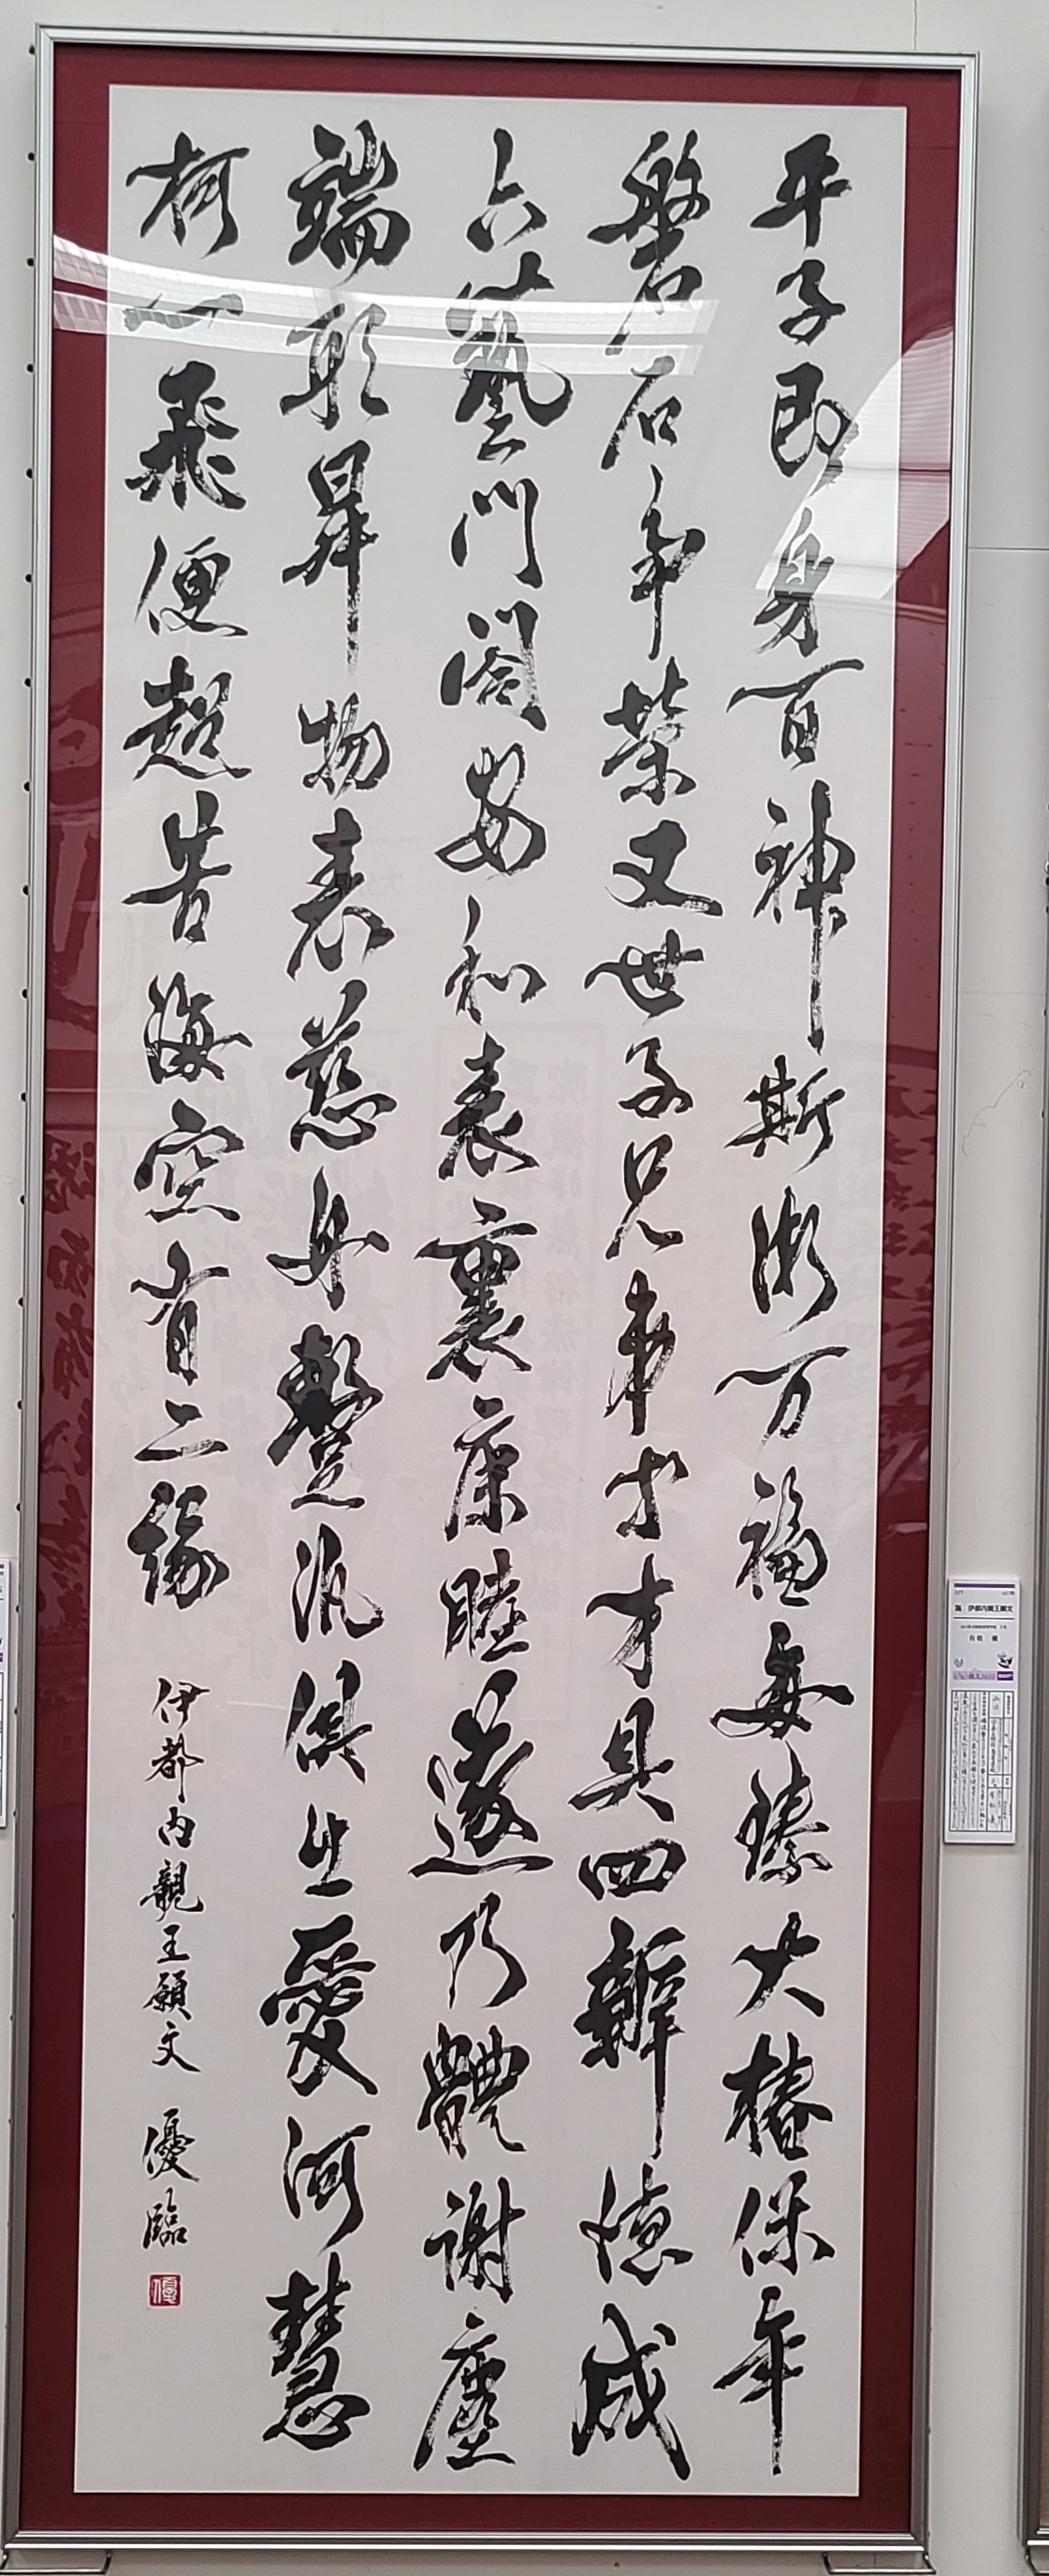 平子即身百神斯衛万福毎臻大椿保年
磐石争榮又世子兄弟等才具四辯徳成
六藝門閤安和表裏康睦遂乃體謝塵
端影昇物表慈舟暫汎俱出愛河慧
柯一飛便超苦海空有二縁
伊都内親王願文 優臨
優
伊都内親王願文